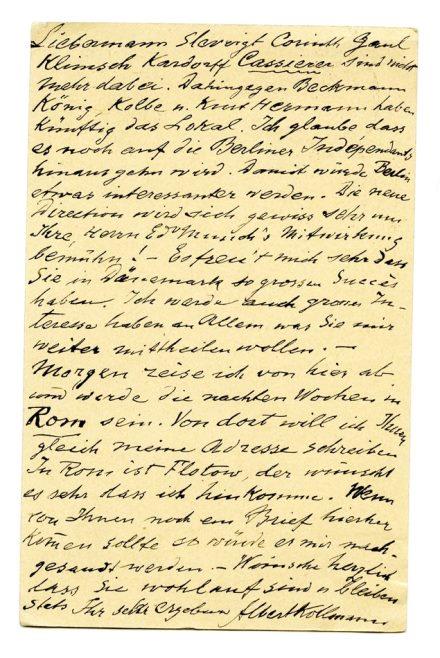 Liebermann Slevoigt Corinth Gaul
Klimsch Kardorff Cassierer sind nicht
mehr dabei. Dahingegen Beckmann
König, Kolbe u. Kurt Hermann haben
künftig das Lokal. Ich glaube dass
es noch auf die Berliner Indépendants
hinausgehn wird. Damit würde Berlin
etwas interessanter werden. Die neue
Direction wird sich gewiss sehr um
Ihre, Herrn Edv Munch's Mitwirkung
bemühn! – Es freut mich sehr dass
Sie in Dänemark so grossen Succes
haben. Ich werde auch grosses In-
teresse haben an Allem was Sie mir
weiter mittheilen wollen. –
Morgen reise ich von hier ab
und werde die nächsten Wochen in
Rom sein. Von dort will ich Ihnen
gleich meine Adresse schreiben
In Rom ist Flotow, der wünscht
es sehr dass ich hinkomme. Wenn
von Ihnen noch ein Brief hierher
kom̅en sollte so würde es mir nach-
gesandt werden. – Wünsche herzlich
dass Sie wohlauf sind u bleiben
stets Ihr sehr ergeben Albert Kollmann